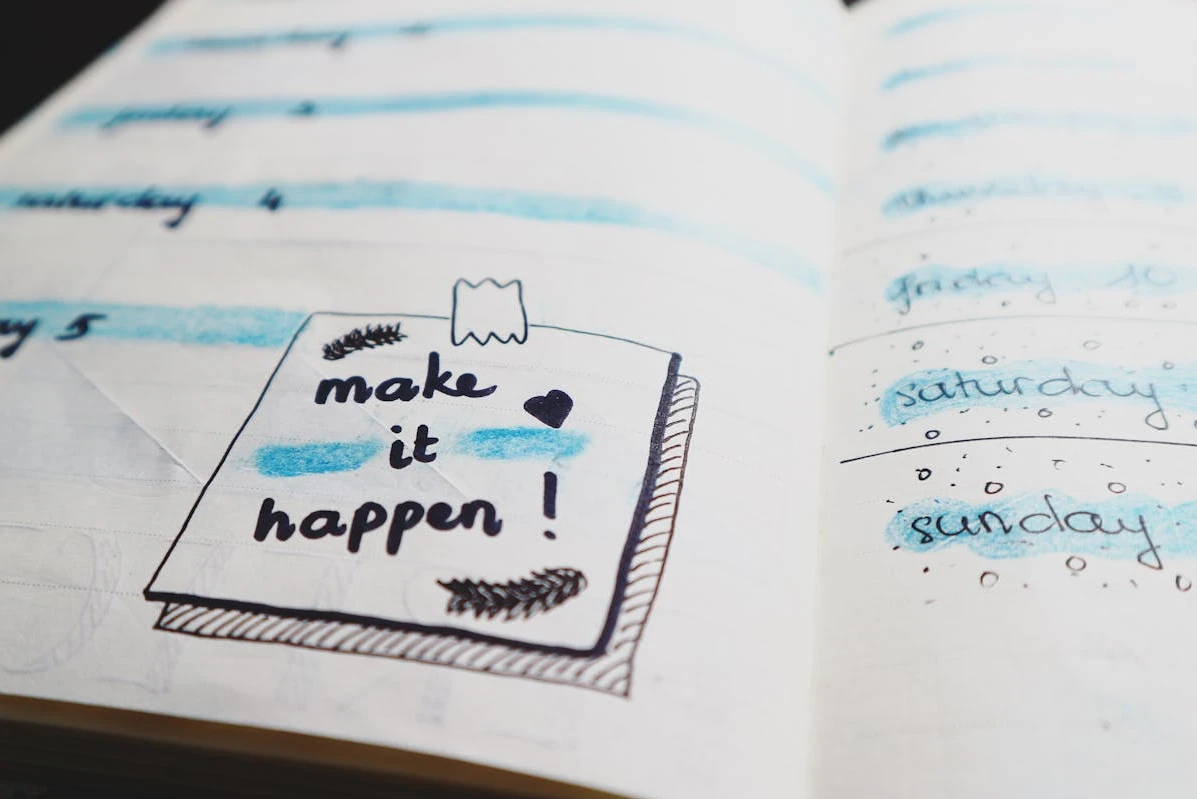 friday 3
saturday 4
ay 5
make
it
happen !
thursday
friday 10
saturday
sunday